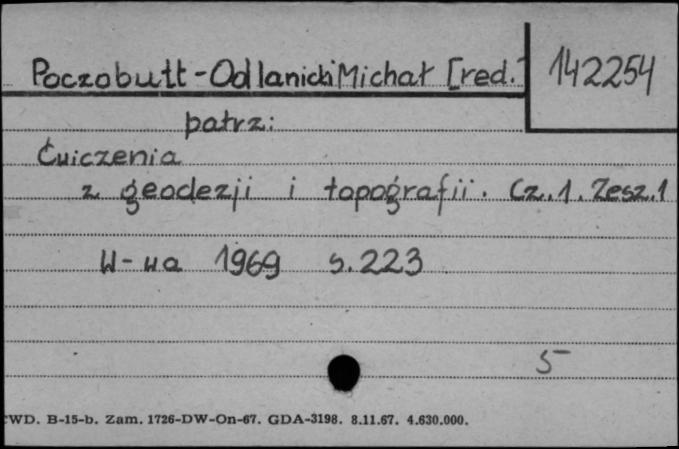 Poczobutt-Odlanicki Michał [red.]
142254
patrz:
Ćwiczenia
z geodezji i topografii. Cz.1. Zesz.1
W-wa 1969 s.223
5
WD. B-15-b. Zam. 1726-DW-On-67. GDA-3198. 8.11.67. 4.630.000.